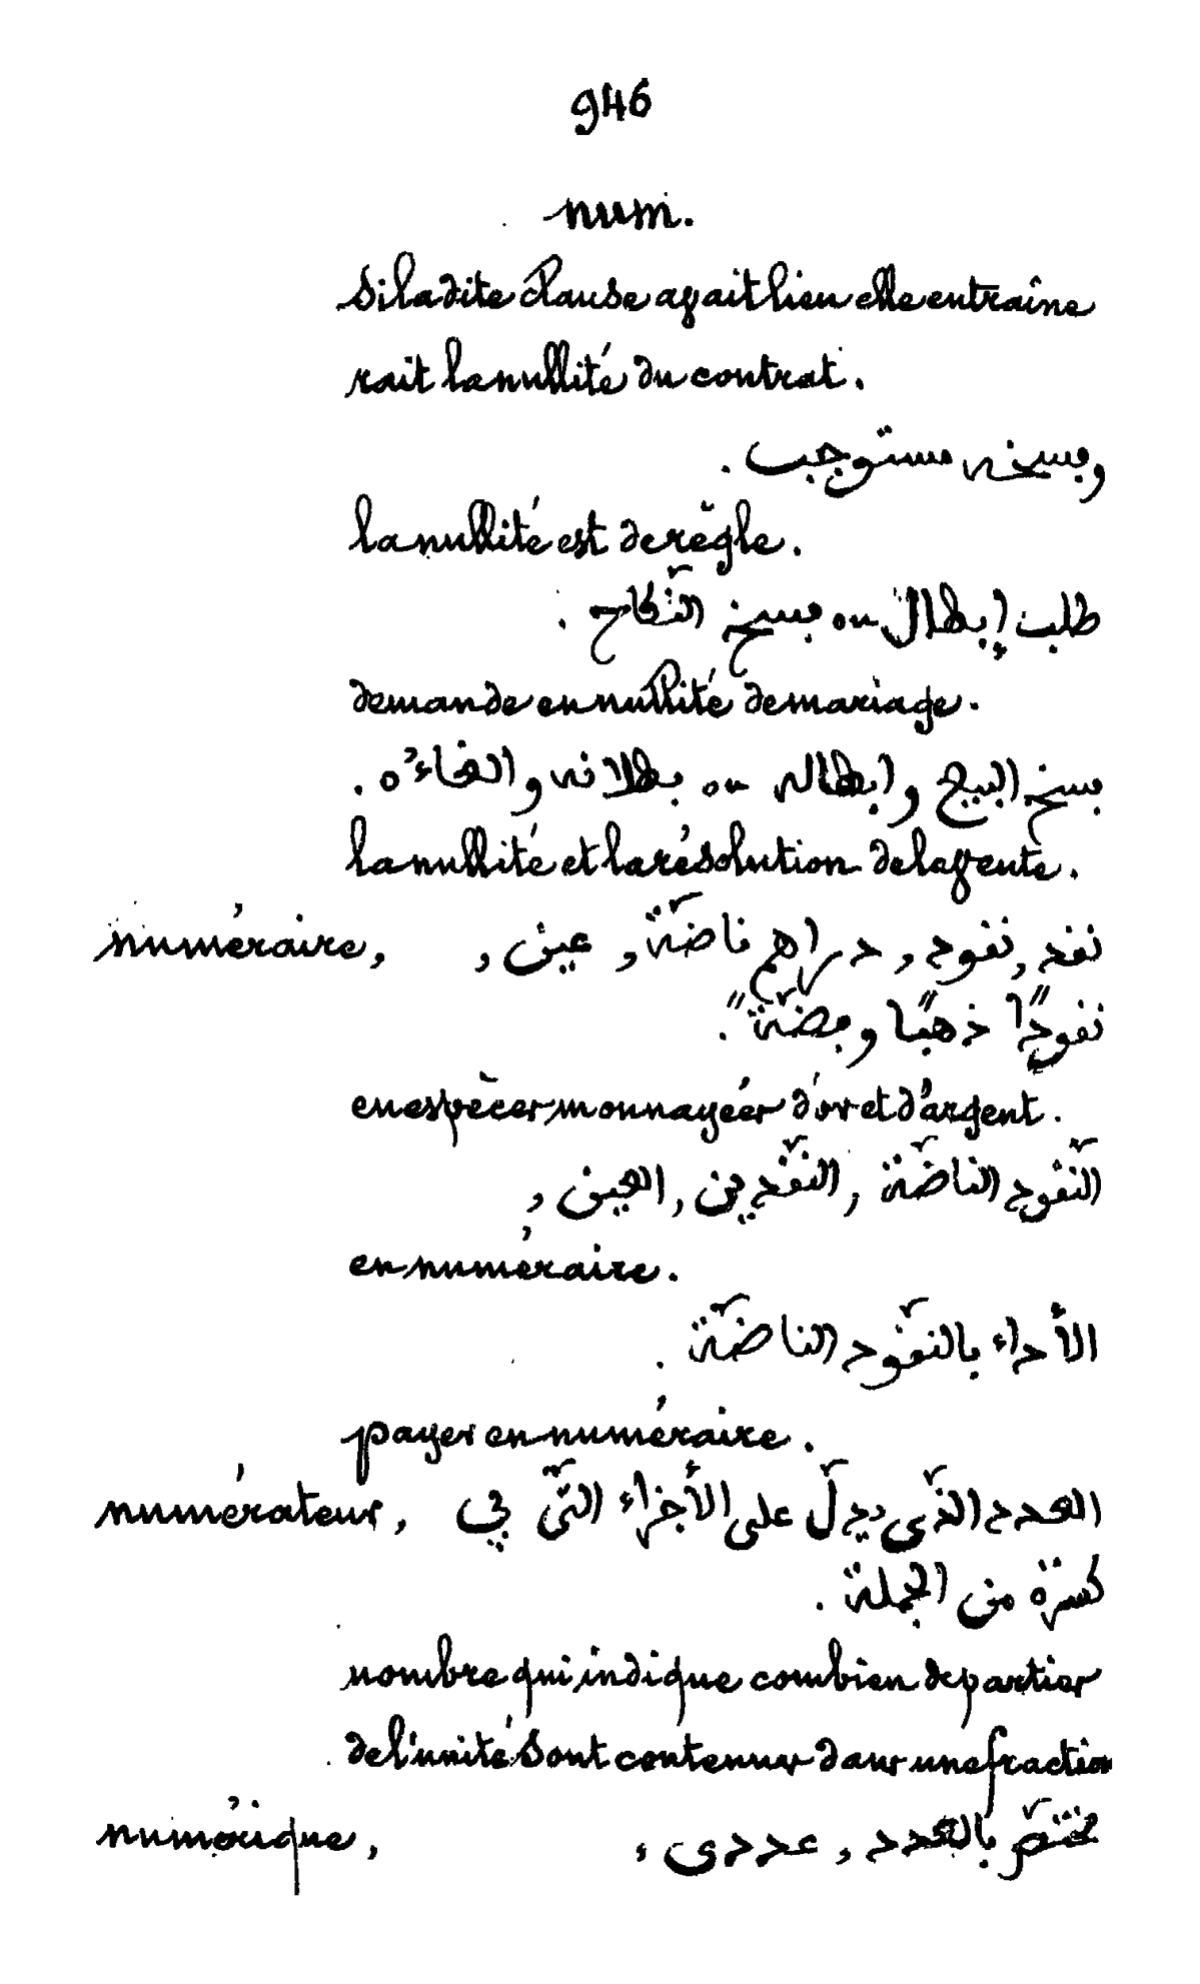 946
num.
si la dite clause avait lieu elle entraîne
rait la nullité du contrat.
وفسخه مستوجب .
la nullité est de règle.
طلب إبطال ou فسخ النّكاح .
demande en nullité de mariage.
فسخ البيع وابطاله ou بطلانه والغاءُه .
la nullité et la résolution de la vente.
numéraire, نقد , نقود , دراهم ناضّة , عين ,
نقودًا ذهبًا وفضّةً .
en espèces monnayées d'or et d'argent.
النّقود الناضّة , النّقدين , العين ,
en numéraire.
الأداء بالنّقود الناضّة .
payer en numéraire.
numérateur, العدد الذّى يدلّ على الأجزاء التّى في
كسرة من الجملة .
nombre qui indique combien de parties
de l'unité sont contenues dans une fraction
numérique, مختصّ بالعدد , عددى ,